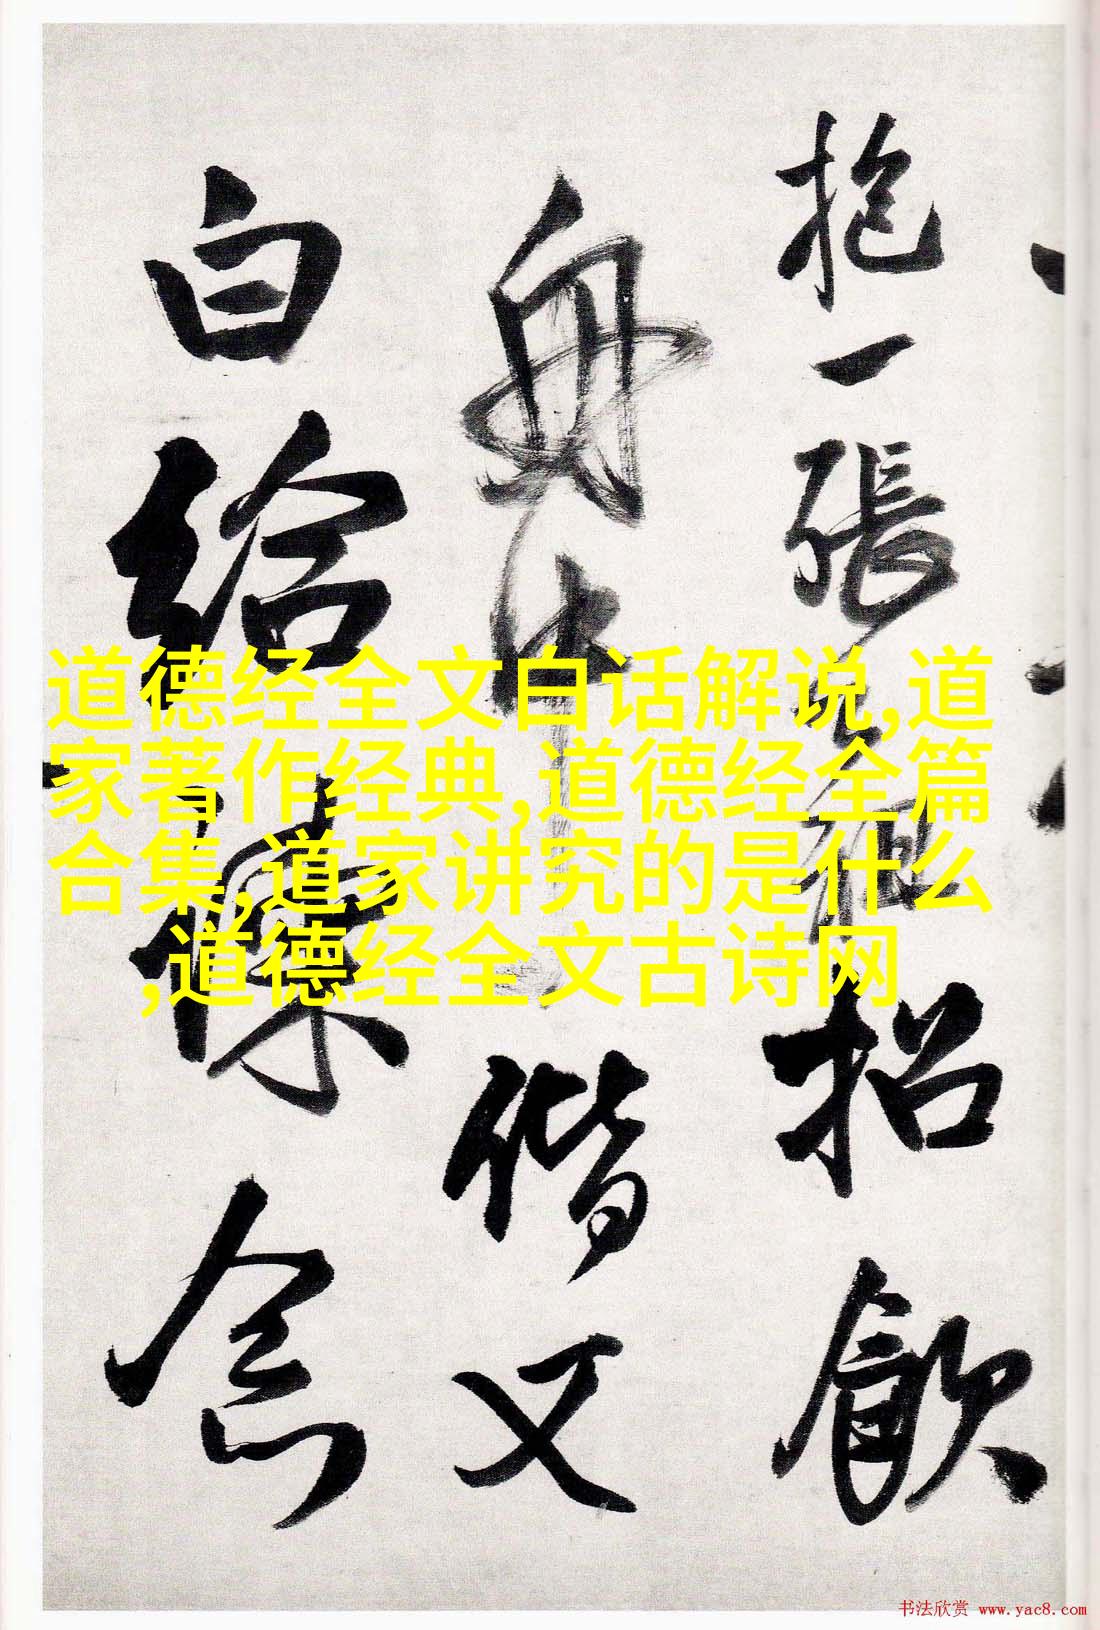 抱一張
招飲
舟中
偕又
白給
念
道德经全文白话解说,道
家著作经典,道德经全篇
合集,道家讲究的是什么
,道德经全文古诗网
书法欣赏 www.yac8.com